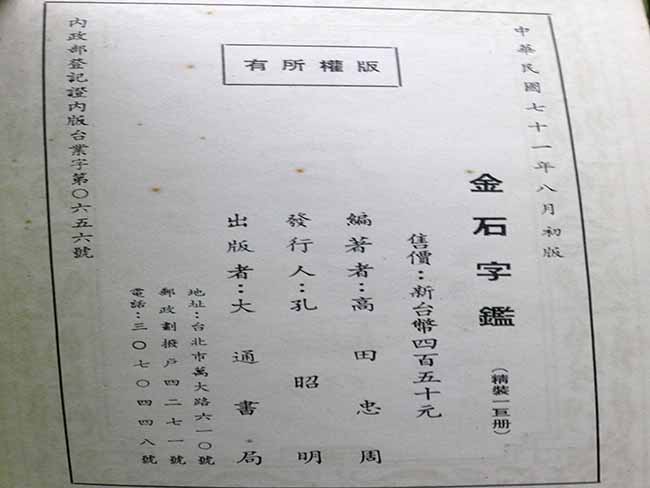 中華民國七十一年八月初版
版權所有
金石字鑑(精裝一巨册)
售價:新台幣四百五十元
編著者:高田忠周
發行人:孔昭明
出版者:大通書局
地址:台北市萬大路六一〇號
郵政劃撥戶四二七一號
電話:三〇七〇四四八號
內政部登記證內版台業字第〇六五六號